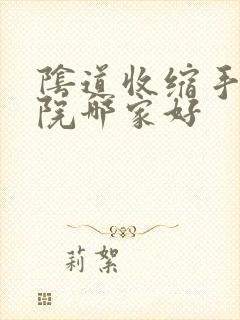 陰道收缩手
院哪家好
莉絮